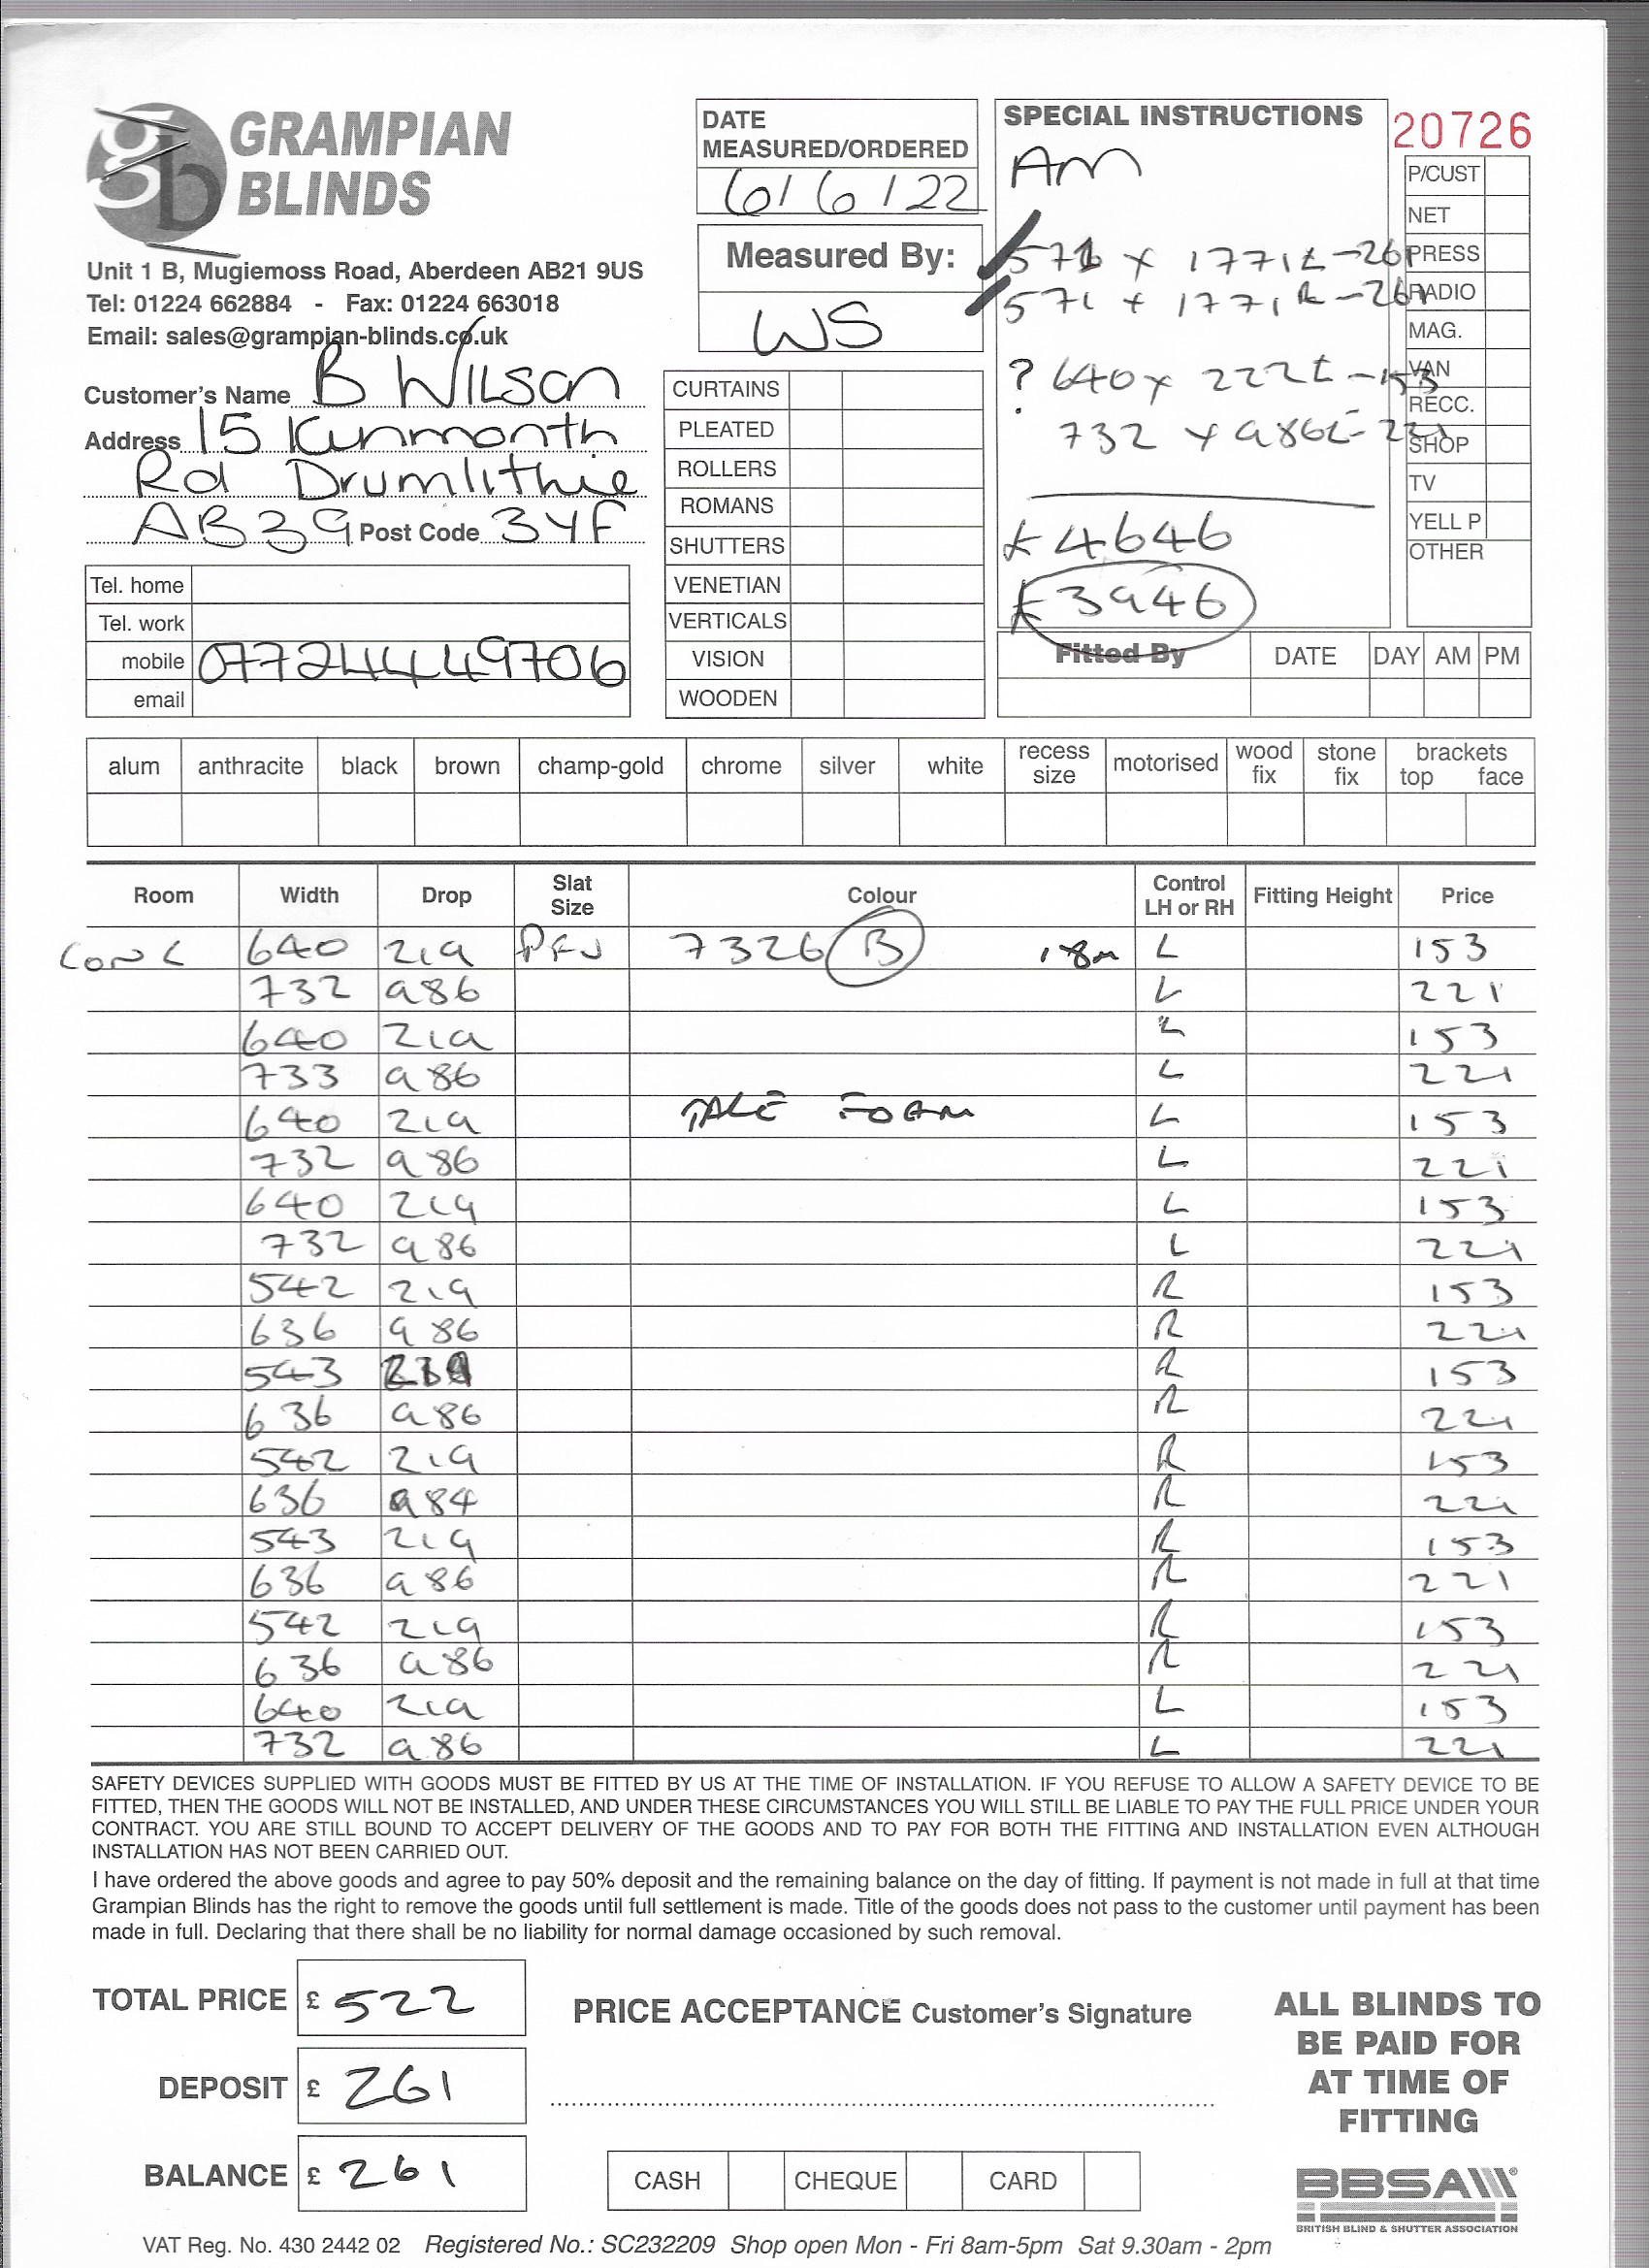 GRAMPIAN
BLINDS
Unit 1 B, Mugiemoss Road, Aberdeen AB21 9US
Tel: 01224 662884 - Fax: 01224 663018
Email: sales@grampian-blinds.co.uk
Customer's Name B Wilson
Address 15 Kinmonth
Rd Drumlithie
AB39 Post Code 3YF
Tel. home
Tel. work
mobile 07724449706
email
DATE
MEASURED/ORDERED
6/6/22
Measured By:
WS
CURTAINS
PLEATED
ROLLERS
ROMANS
SHUTTERS
VENETIAN
VERTICALS
VISION
WOODEN
SPECIAL INSTRUCTIONS
AM
571 x 1771 L - 261
571 x 1771 R - 261
? 640 x 222 L - 153
732 x 986 L - 221
£4646
£3946
20726
P/CUST
NET
PRESS
RADIO
MAG.
VAN
RECC.
SHOP
TV
YELL P
OTHER
Fitted By DATE DAY AM PM
alum anthracite black brown champ-gold chrome silver white recess size motorised wood fix stone fix brackets top face
Room Width Drop Slat Size Colour Control LH or RH Fitting Height Price
Con L 640 219 PFJ 7326 B 1.8m L 153
732 986 L 221
640 219 L 153
733 986 L 221
640 219 PALE FOAM L 153
732 986 L 221
640 219 L 153
732 986 L 221
542 219 R 153
636 986 R 221
543 219 R 153
636 986 R 221
542 219 R 153
636 984 R 221
543 219 R 153
636 986 R 221
542 219 R 153
636 986 R 221
640 219 L 153
732 986 L 221
SAFETY DEVICES SUPPLIED WITH GOODS MUST BE FITTED BY US AT THE TIME OF INSTALLATION. IF YOU REFUSE TO ALLOW A SAFETY DEVICE TO BE
FITTED, THEN THE GOODS WILL NOT BE INSTALLED, AND UNDER THESE CIRCUMSTANCES YOU WILL STILL BE LIABLE TO PAY THE FULL PRICE UNDER YOUR
CONTRACT. YOU ARE STILL BOUND TO ACCEPT DELIVERY OF THE GOODS AND TO PAY FOR BOTH THE FITTING AND INSTALLATION EVEN ALTHOUGH
INSTALLATION HAS NOT BEEN CARRIED OUT.
I have ordered the above goods and agree to pay 50% deposit and the remaining balance on the day of fitting. If payment is not made in full at that time
Grampian Blinds has the right to remove the goods until full settlement is made. Title of the goods does not pass to the customer until payment has been
made in full. Declaring that there shall be no liability for normal damage occasioned by such removal.
TOTAL PRICE £ 522
DEPOSIT £ 261
BALANCE £ 261
PRICE ACCEPTANCE Customer's Signature
CASH CHEQUE CARD
ALL BLINDS TO
BE PAID FOR
AT TIME OF
FITTING
BBSA
BRITISH BLIND & SHUTTER ASSOCIATION
VAT Reg. No. 430 2442 02 Registered No.: SC232209 Shop open Mon - Fri 8am-5pm Sat 9.30am - 2pm